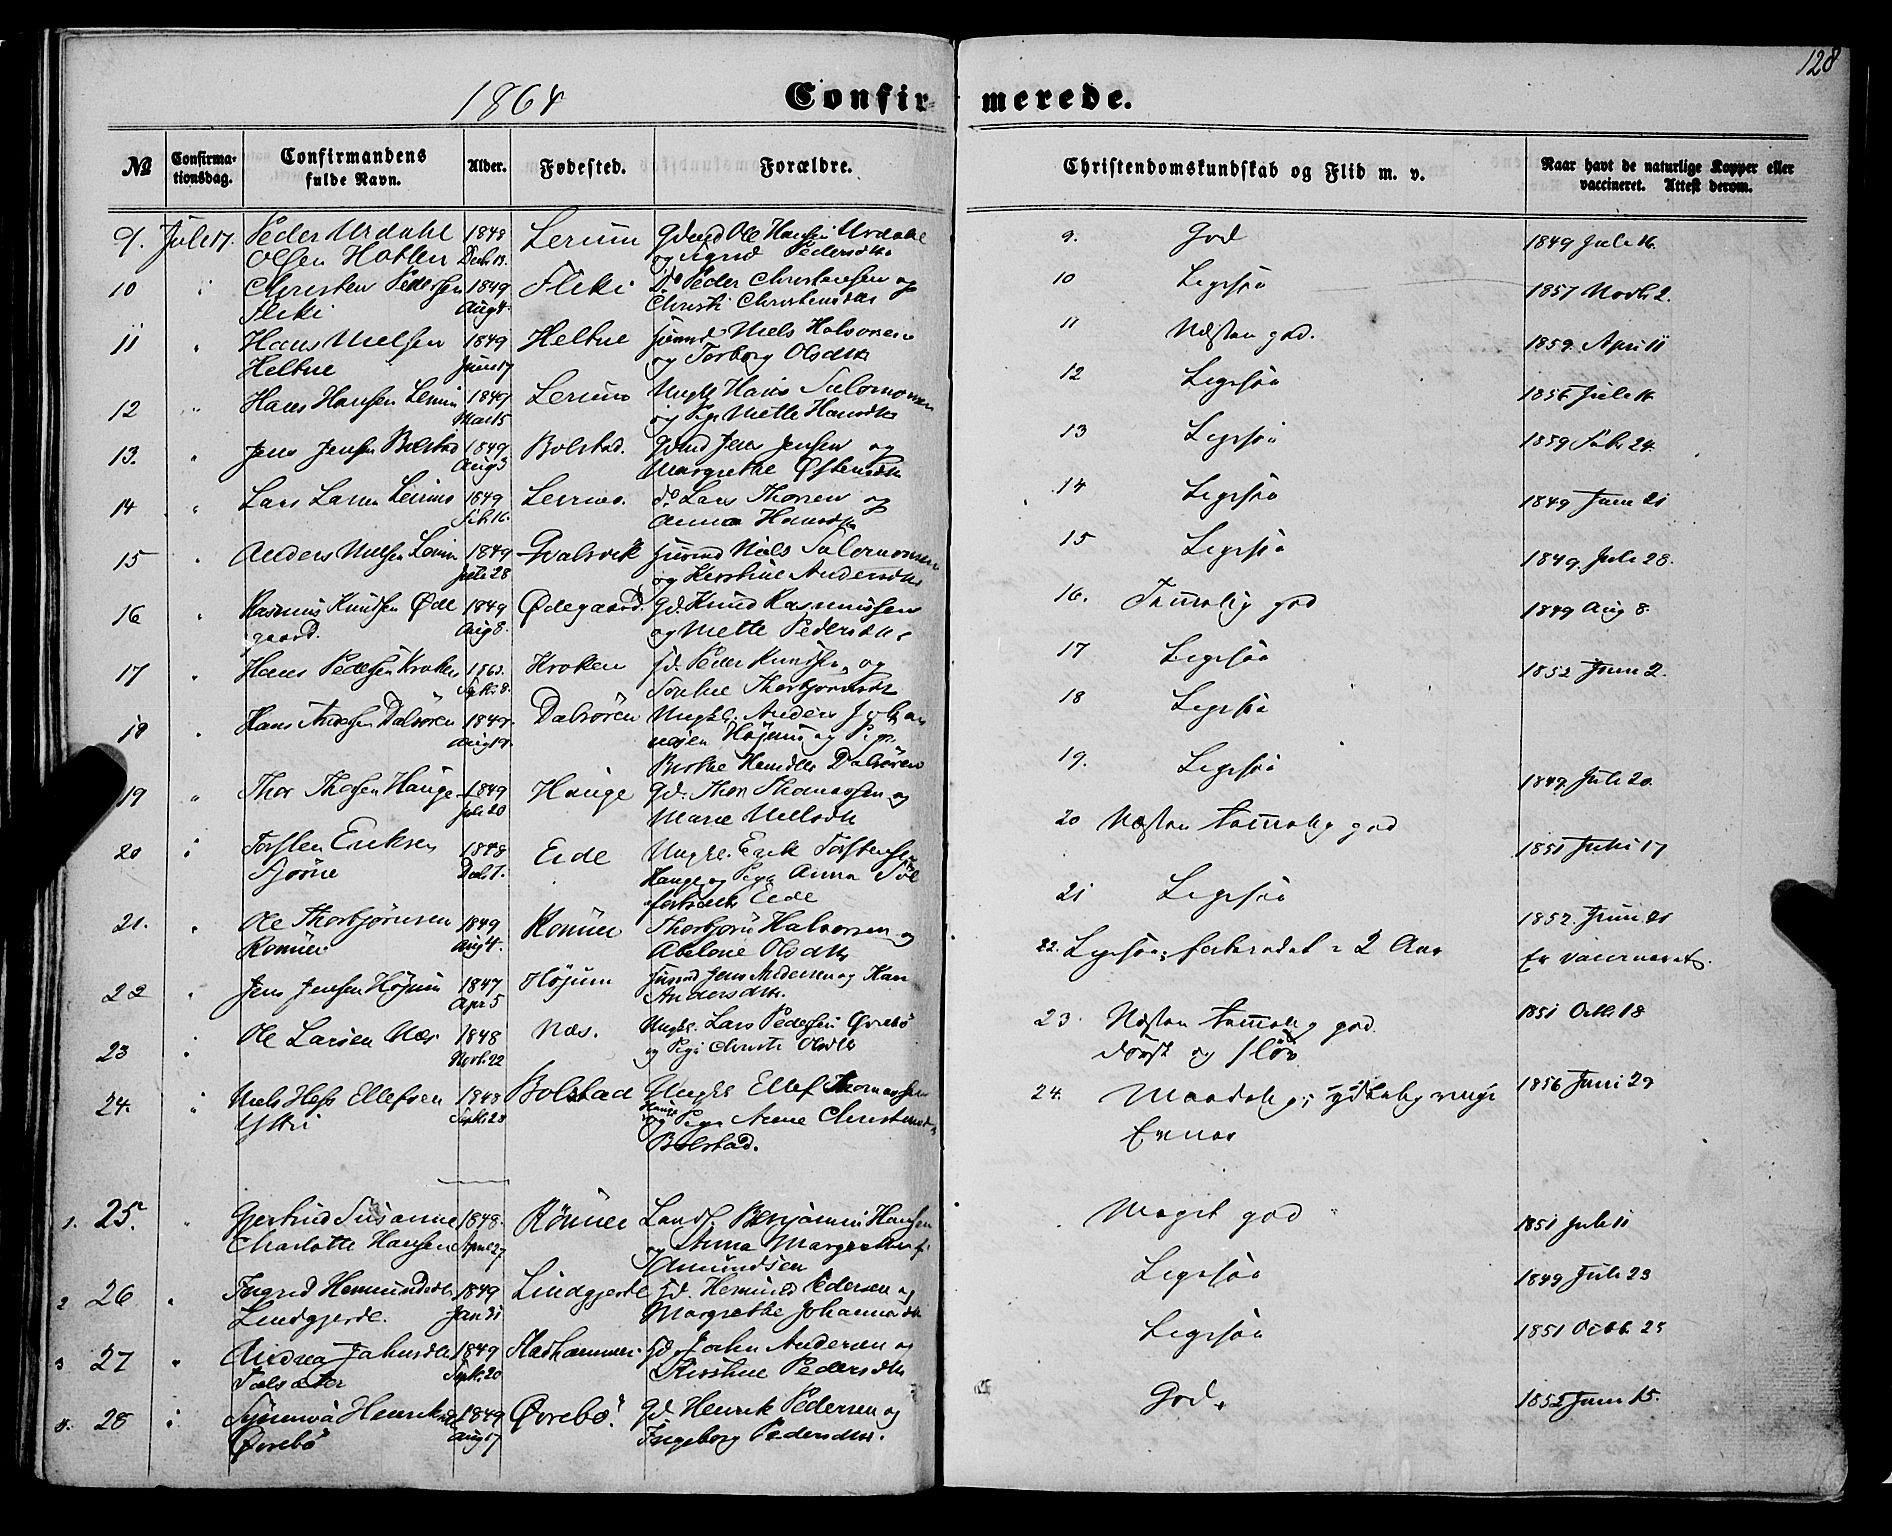 128
1864 Confirmerede.
№ Confirmationsdag. Confirmandens fulde Navn. Alder. Fødested. Forældre. Christendomskundskab og Flid m. v. Naar havt de naturlige Kopper eller vaccineret. Attest derom.
9. Juli 17. Peder Urdahl 1848 Lerum Gdmd Ole Hansen Urdahl 9. God 1849 Juli 16.
Olsen Decb 13. og Sigrid Pedersdtr
10 Christen Pedersen 1849 Fleki Do Peder Christensen og 10 Ligesaa 1857 Novb 2.
Fleki Aug 4. Christi Christensdtr
11 Hans Nielsen 1849 Heltne Niels Halvorsen 11 Næsten god. 1859. Apr 11
Heltne Juni 17 og Torborg Olsdtr
12 Hans Hansen Lerum 1849 Lerum Ungk Hans Salomonsen 12 Ligesaa 1856 Juli 16.
Mai 15 og Pge Mette Hansdtr
13. Jens Jensen Bolstad 1849 Bolstad. Gdmd Jens Jensen og 13 Ligesaa 1859 Febr 24.
Aug 3 Margrethe Østensdtr
14 Lars Larsen Lerum 1849 Lerum. do Lars Thorsen og 14 Ligesaa 1849 Juni 21
Feb. 16. Anna Hansdtr
15 Anders Nielsen Lerum 1849 Kvalsvik Niels Salomonsen 15 Ligesaa 1849. Juli 28.
Juli 28 og Kirstine Andersdtr
16 Rasmus Knudsen Øde 1849 Ødegaard. Gd. Knud Rasmussen 16. Temmelig god 1849 Aug 8.
gaard. Aug 8. og Mette Pedersdtr
17 Hans Pedersen Kroken Kroken Gd. Peder Knudsen og 17 Ligesaa 1852 Juni 2.
Septb 8. Thorbjørnsdtr
18 Hans Andersen Dalsøren 1849. Dalsøren Ungk. Anders Johan 18 Ligesaa
Aug 19. nesen Højum og Pige
Hansdtr Dalsøren
19 Thor Thorsen Hauge 1849 Hauge Gd. Thor Thomassen og 19. Ligesaa 1849 Juli 20.
Juli 20 Marie Nielsdtr
20 Torsten Eriksen 1848 Eide Ungk. Erik Torstensen 20 Næsten temmelig god 1851 Juli 17
Decb 7. Hauge og Pige Anna
Eide
21. Ole Thorbjørnsen 1849 Thorbjørn Halvorsen og 21 Ligesaa 1852. Juni 21
Aug 4. Abelone Olsdtr
22 Jens Jensen Højum 1847 Højum Jens Andersen og Kari 22. Ligesaa; forberedet i 2 Aar Er vaccineret.
Apr 5 Andersdtr.
23 Ole Larsen Næs 1848 Næs. Ungk. Lars Pedersen Øvrebø 23. Næsten temmelig god. 1851 Octb. 18
Novb. 22 og Pige Christi Olsdtr og sløv
24. Niels Hess Ellefsen 1848 Bolstad Ungk Ellef Thomassen 24. Maadelig; ydterlig ringe 1856 Juni 29
Ytti Septb. 28 Hauge og Pige Anne Christensdtr Evner
Bolstad.
1. 25. Gjertrud Susanne 1848. Lands. Benjamin Hansen Meget god 1851 Juli 11
Charlotte Hansen April 27 og Anna Margrethe f.
Amundsen
2 26 Ingrid Hermundsdtr 1849 Lindgjerde Gd. Hermund Pedersen og Ligesaa 1849 Juli 23
Lindgjerde. Jan 31 Margrethe Johannesdtr
3 27 Andrea Johnsdtr 1849 Gd. John Andersen og Ligesaa 1851 Octb. 25
Septb. 20 Kirstine Pedersdtr
4. 28 Synneva Henriksd 1849 Øvrebø. Gd. Henrik Pedersen og God. 1852 Juni 15.
Øvrebø Aug 17 Ingeborg Pedersdtr.